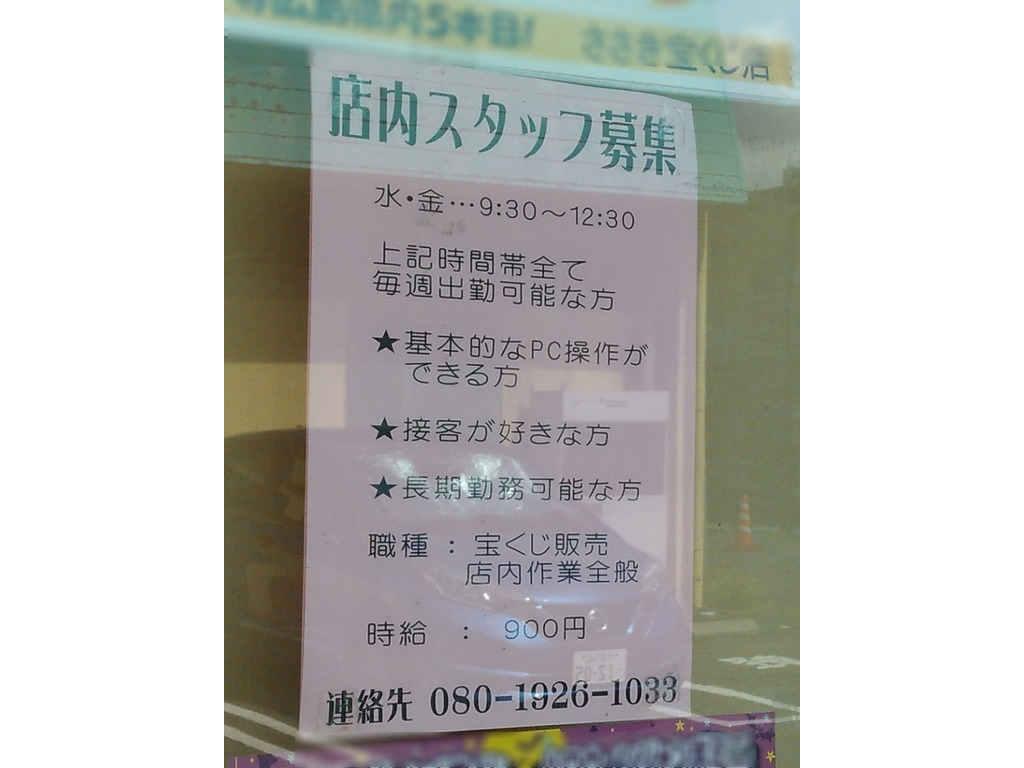 広島県内5本目!
店内スタッフ募集
水・金…9:30～12:30
上記時間帯全て
毎週出勤可能な方
★基本的なPC操作が
できる方
★接客が好きな方
★長期勤務可能な方
職種 : 宝くじ販売
店内作業全般
時給 : 900円
連絡先 080-1926-1033